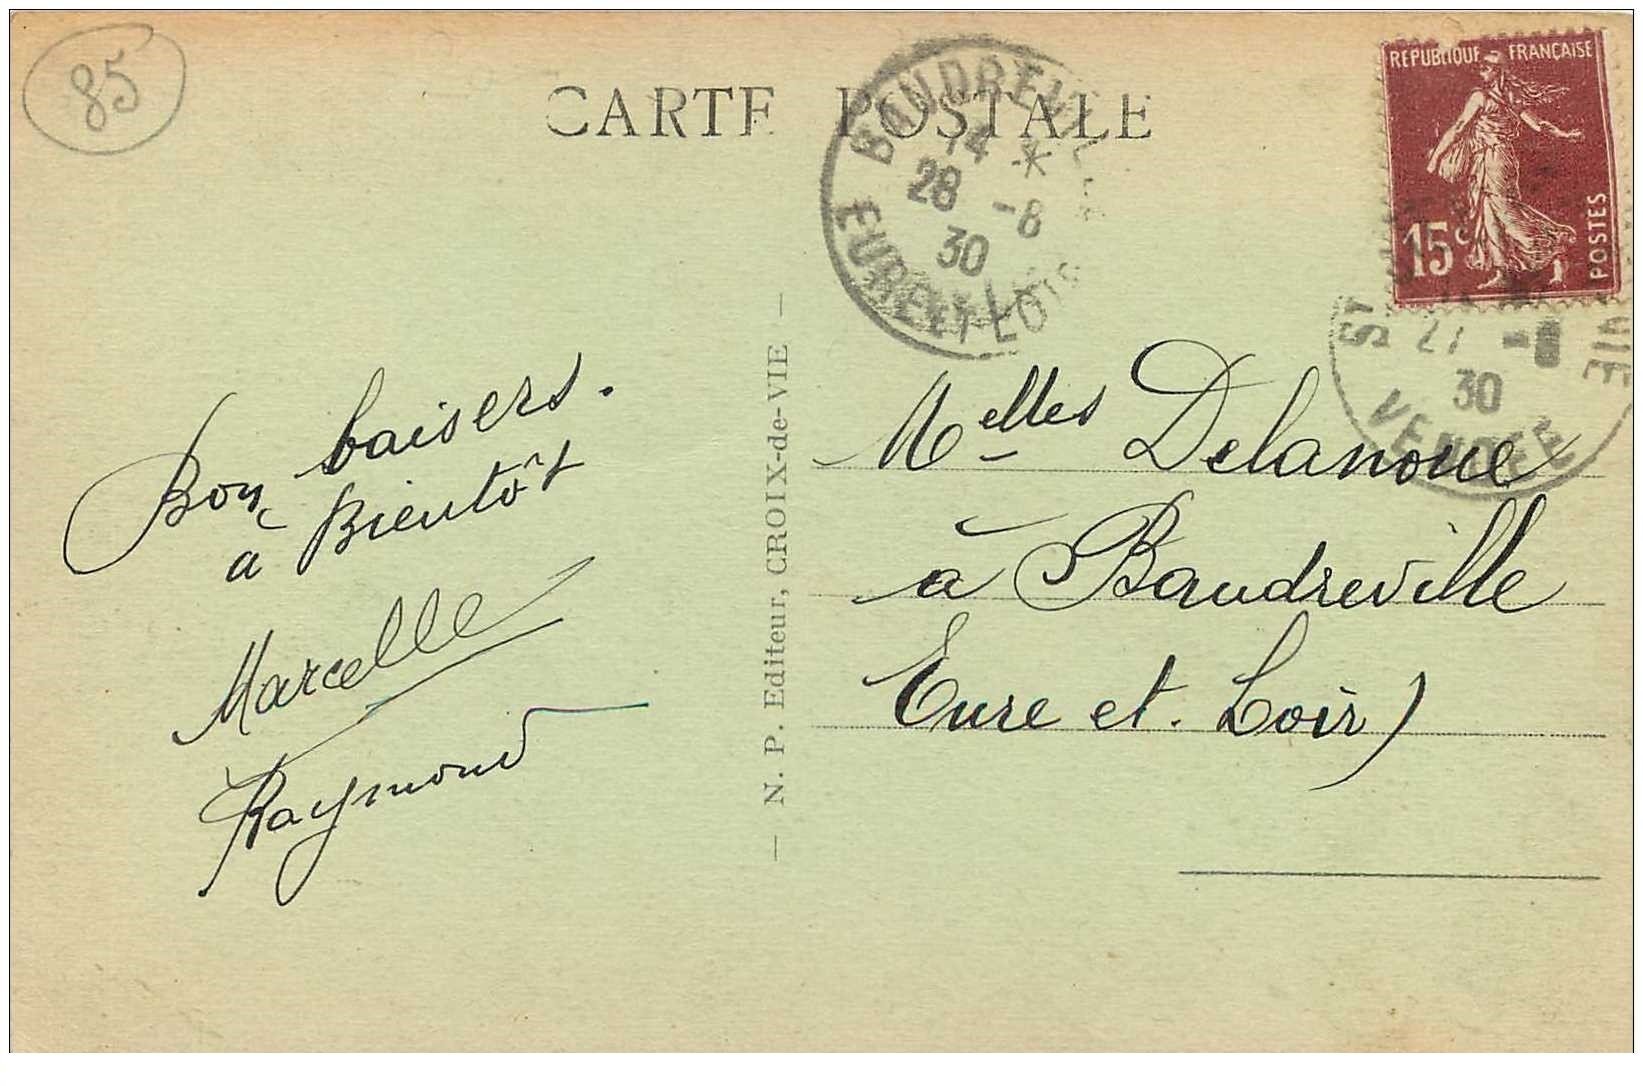 85
CARTE POSTALE
BAUDREVILLE
14 *
28 -8
30
EURE ET LOIR
REPUBLIQUE FRANÇAISE
15c
POSTES
ST
VIE
27 -8
30
VENDEE
Bon baisers.
à Bientôt
Marcelle
Raymond
— N. P. Editeur, CROIX-de-VIE —
Melles Delanoue
à Baudreville
Eure et. Loir)